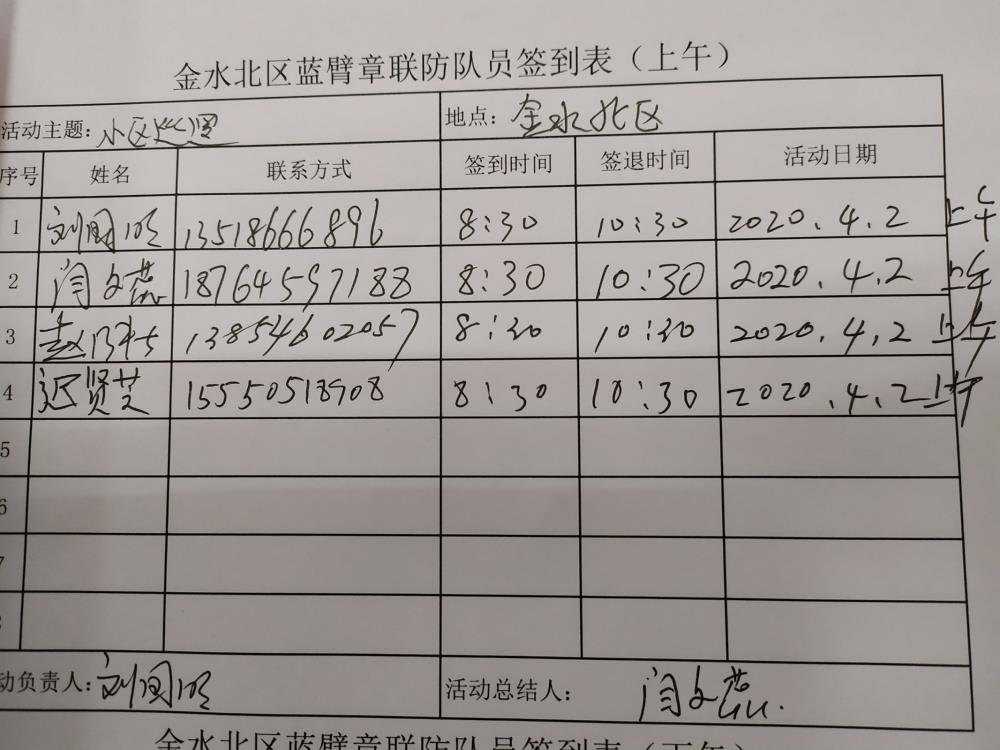 金水北区蓝臂章联防队员签到表（上午）
活动主题：小区巡逻 地点：金水北区
序号 姓名 联系方式 签到时间 签退时间 活动日期
1 刘国明 13518666896 8:30 10:30 2020.4.2 上午
2 闫文燕 18764597188 8:30 10:30 2020.4.2 上午
3 赵 13854602057 8:30 10:30 2020.4.2 上午
4 迟贤芝 15550518908 8:30 10:30 2020.4.2 上午
5
6
动负责人：刘国明 活动总结人：闫文燕.
金水北区蓝臂章联防队员签到表（下午）